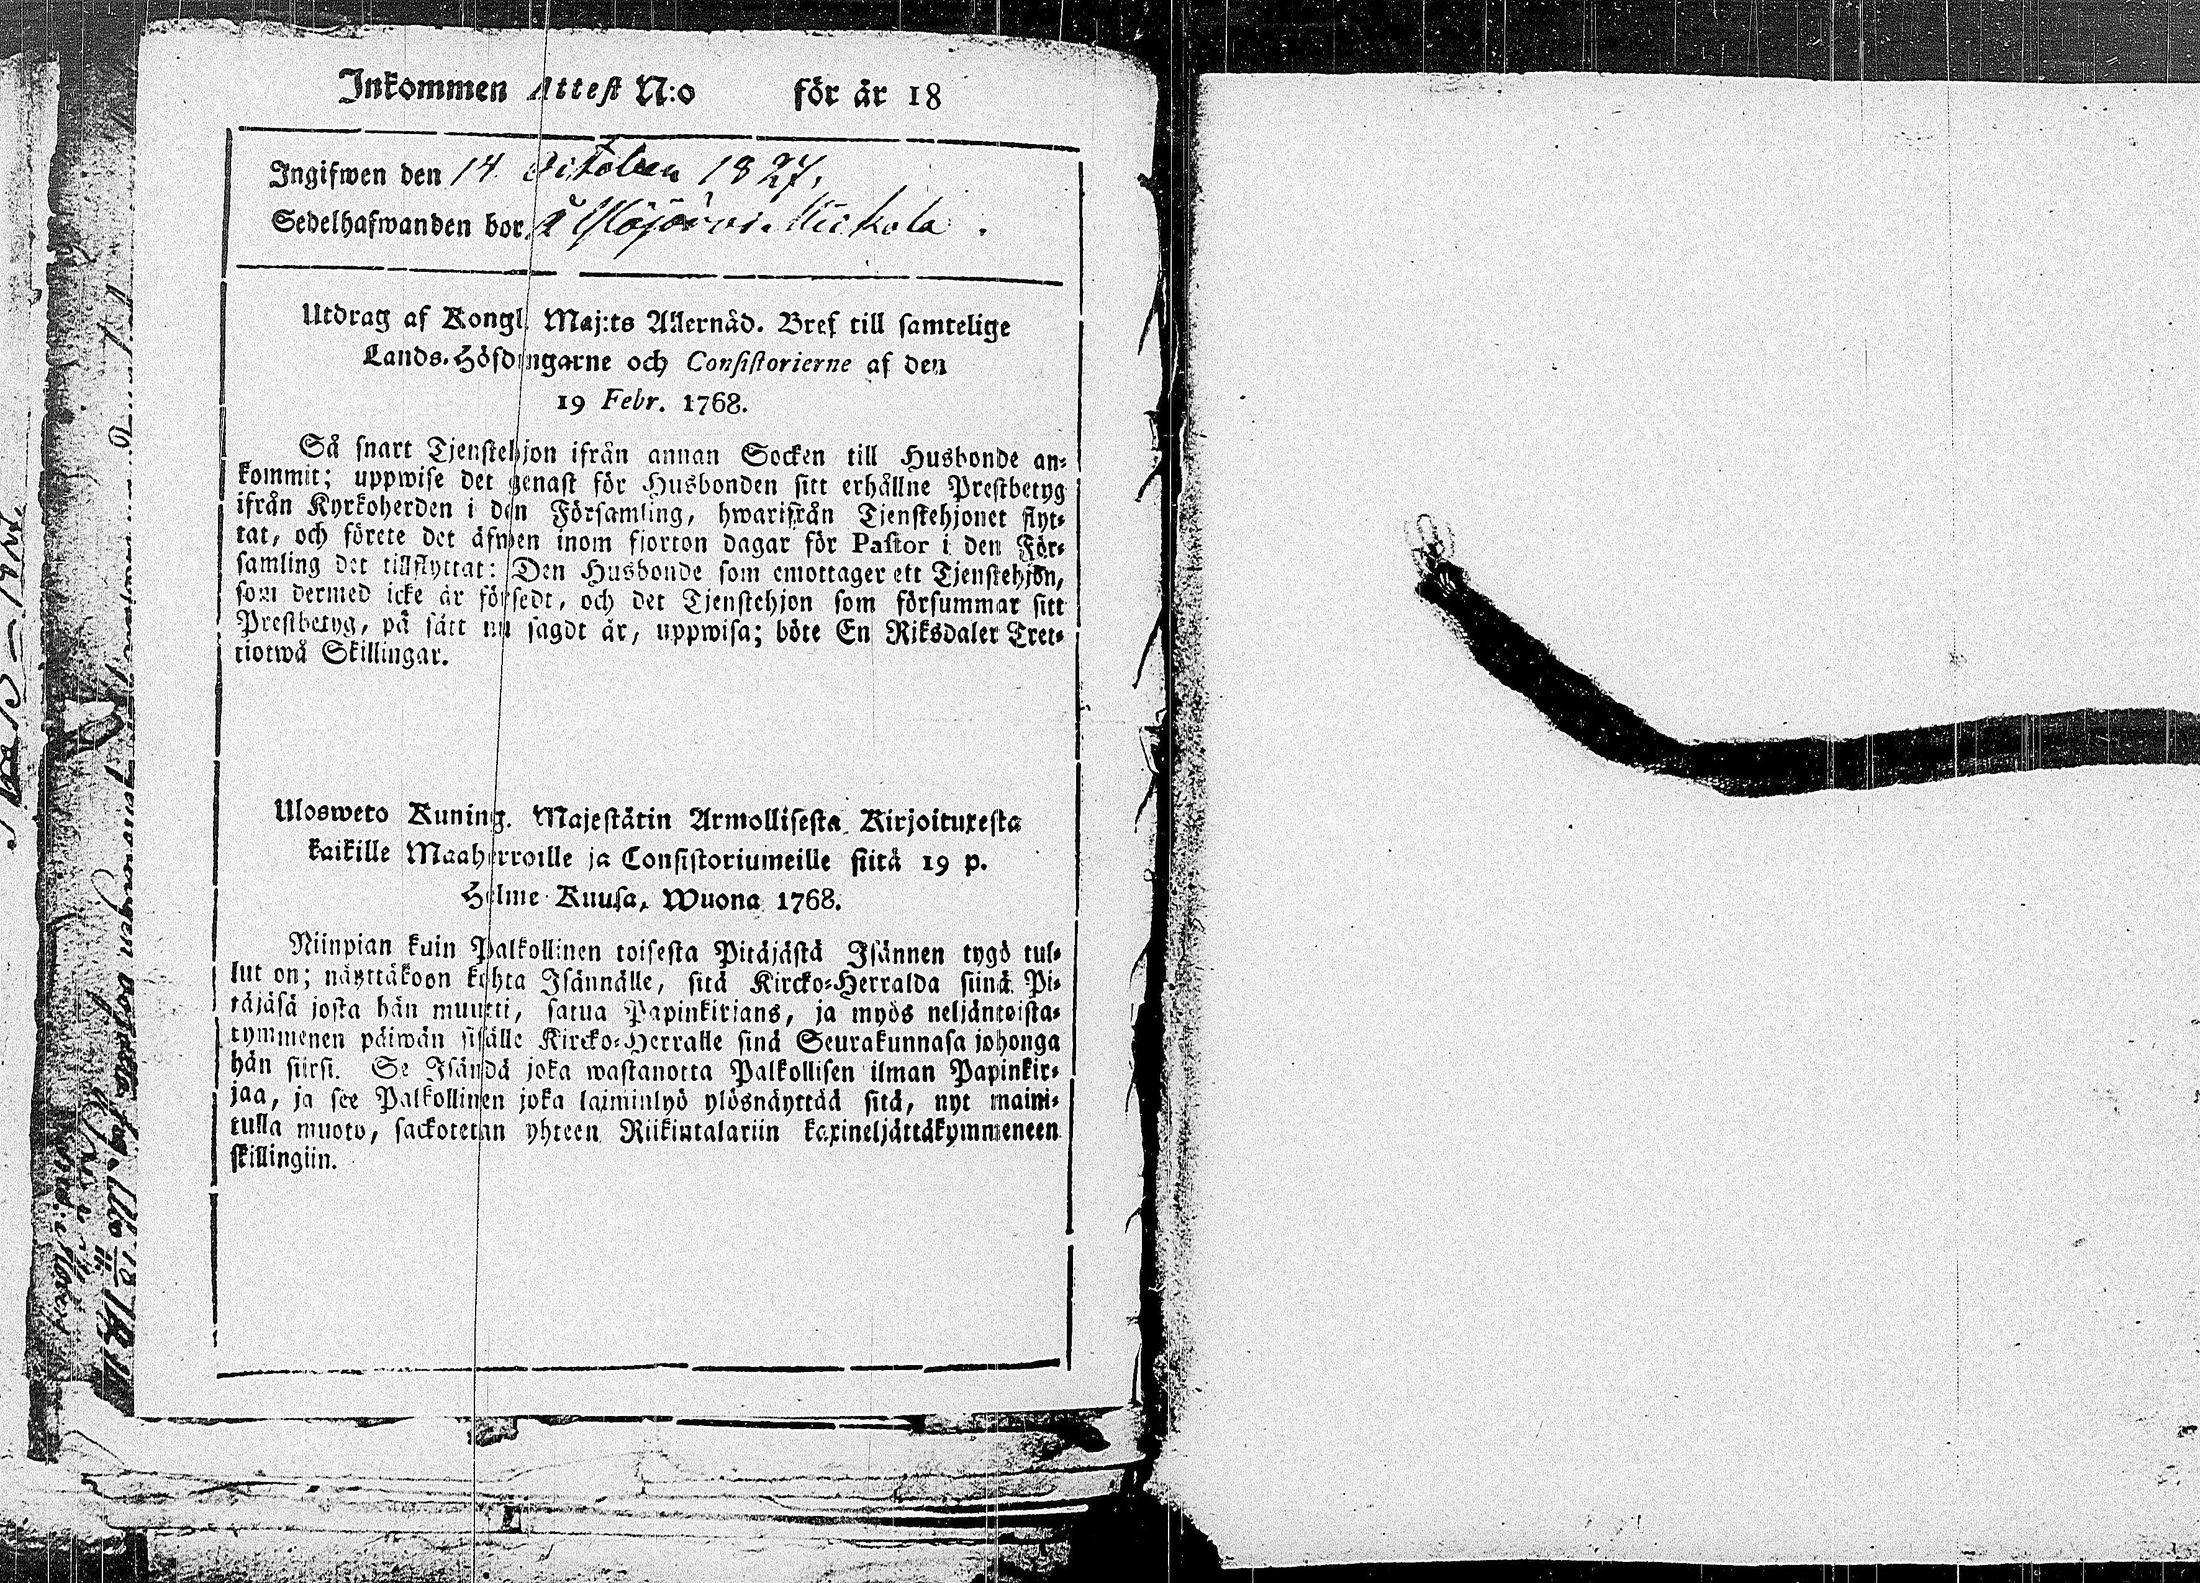 Inkommen Attest N:o för år 18
Ingifwen den 14 October 1827.
Sedelhafwanden bor å Ylöjärvi
Utdrag af Kongl. Maj:ts Allernåd. Bref till samtelige
Lands-Höfdingarne och Consistorierne af den
19 Febr. 1768.
Så snart Tjenstehjon ifrån annan Socken till Husbonde an-
kommit; uppwise det genast för Husbonden sitt erhållne Prestbetyg
ifrån Kyrkoherden i den Församling, hwarifrån Tjenstehjonet flyt-
tat, och förete det äfwen inom fjorton dagar för Pastor i den För-
samling det tillflyttat: Den Husbonde som emottager ett Tjenstehjon,
som dermed icke är försedt, och det Tjenstehjon som försummar sitt
Prestbetyg, på sätt nu sagdt är, uppwisa; böte En Riksdaler Tret-
tiotwå Skillingar.
Ulosweto Kuning. Majestätin Armollisesta Kirjoituxesta
kaikille Maaherroille ja Consistoriumeille siitä 19 p.
Helme Kuusa, Wuona 1768.
Niinpian kuin Palkollinen toisesta Pitäjästä Isännen tygö tul-
lut on; näyttäkoon kohta Isännälle, sitä Kircko-Herralda siinä Pi-
täjäsä josta hän muutti, satua Papinkirjans, ja myös neljäntoista-
kymmenen päiwän sisälle Kircko-Herralle sinä Seurakunnasa johonga
hän siirsi. Se Isändä joka wastanotta Palkollisen ilman Papinkir-
jaa, ja see Palkollinen joka laiminlyö ylösnäyttää sitä, nyt maini-
tulla muoto, sackotetan yhteen Riikintalariin kaxineljättäkymmeneen
skillingiin.